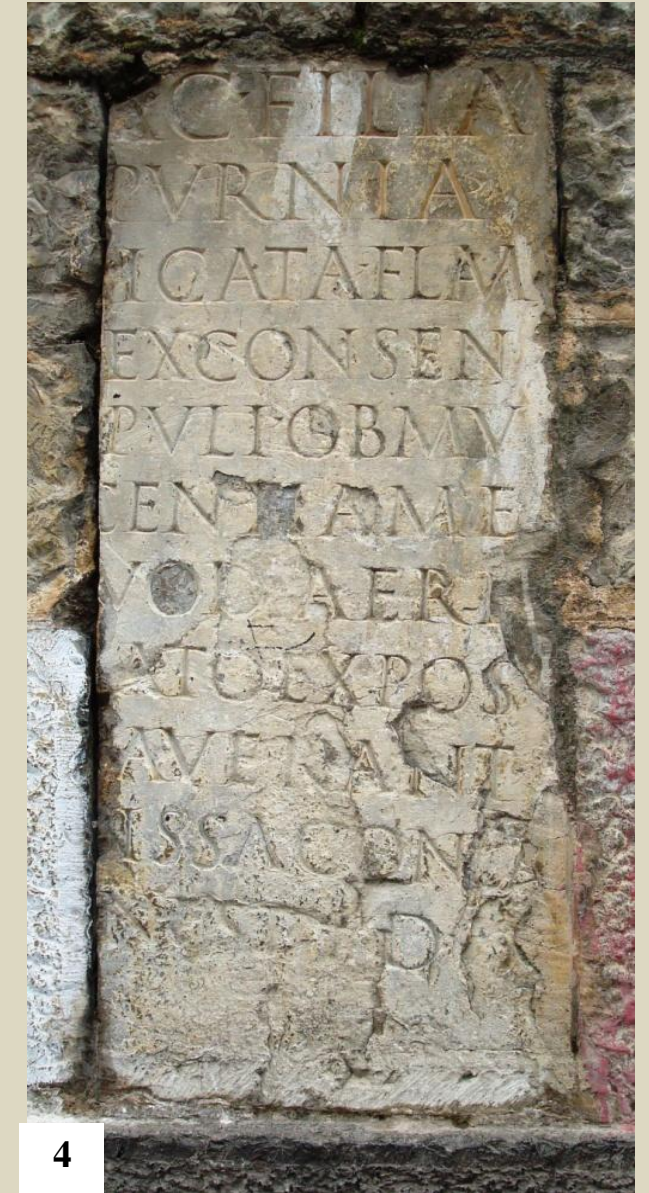 C·FILIA
PVRNIA
ICATA·FLAM
EX·CONSEN
PVLI·OB·MV
CENTIAM·E
VOD AERE
ATO EXPOS
AVERANT
ISSA CON
D
4